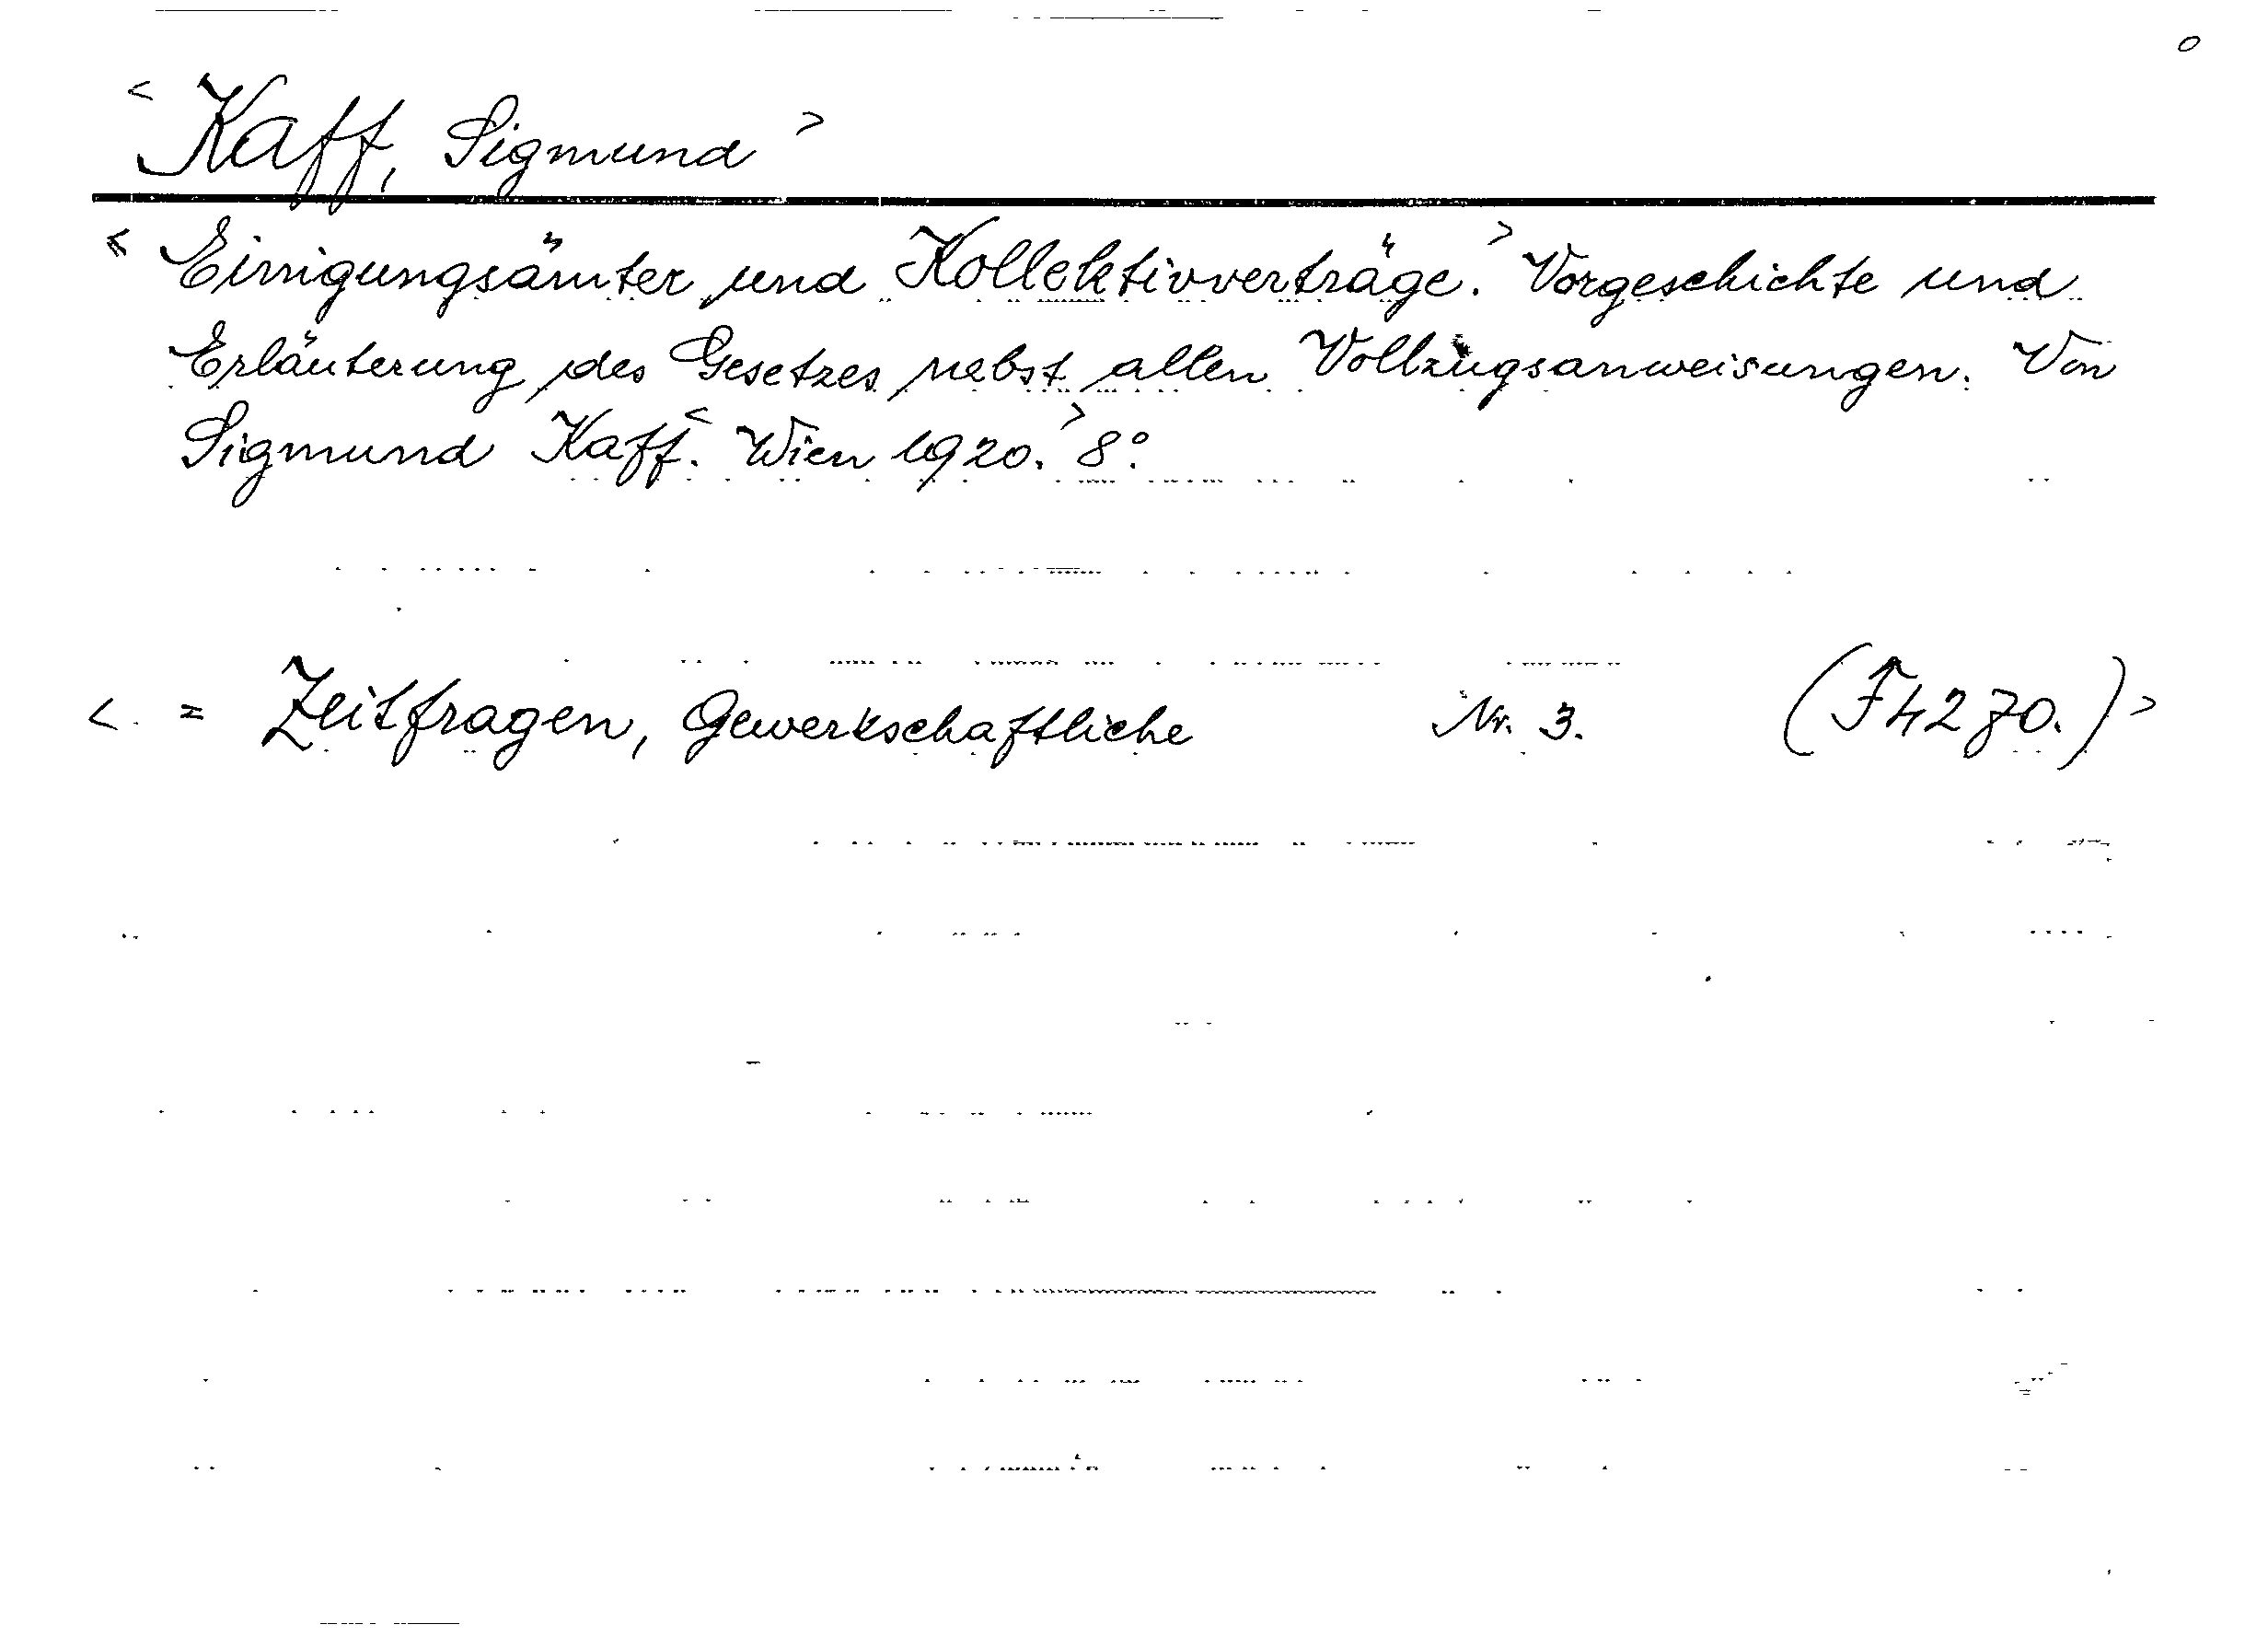 <Kaff, Sigmund>
<Einigungsämter und Kollektivverträge.> Vorgeschichte und
Erläuterung des Gesetzes nebst allen Vollzugsanweisungen. Von
Sigmund Kaff. <Wien 1920.> 8°.
< = Zeitfragen, Gewerkschaftliche Nr. 3. (F4270.)>